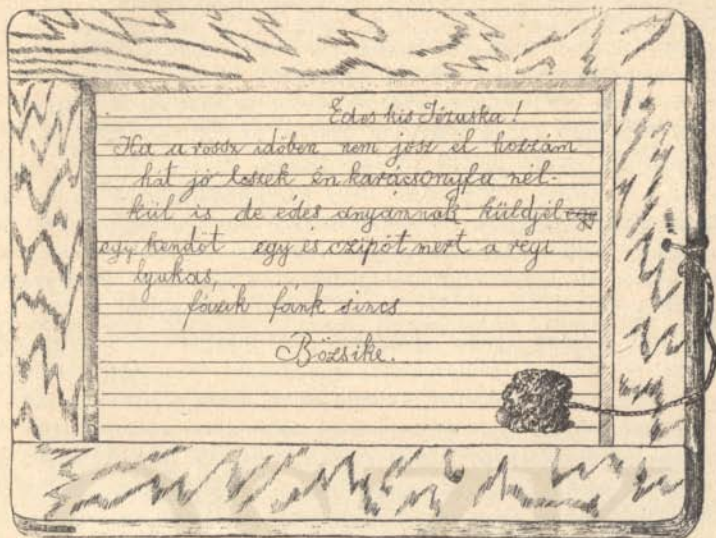 Édes kis Jézuska!
Ha a rossz időben nem jösz el hozzám
hát jó leszek én karácsonyfa nél-
kül is de édes anyámnak küldjél egy
egy kendőt egy és czipőt mert a régi
lyukas,
fázik fánk sincs
Bözsike.